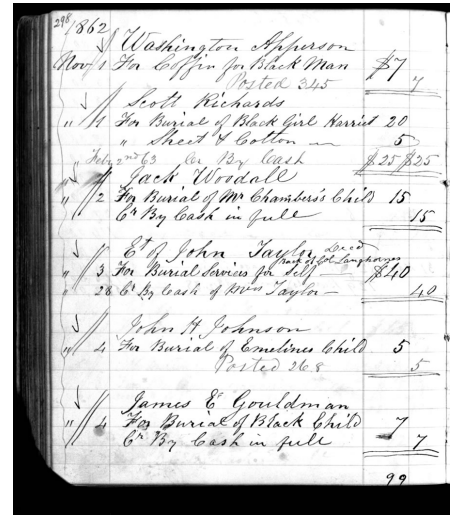 298
1862
Washington Apperson
Nov 1 For Coffin for Black Man $7
Posted 345 7
Scott Richards
" 1 For Burial of Black Girl Harriet 20
" Sheet & Cotton 5
" Feby 2nd 63 Cr By Cash $25 $25
Jack Woodall
" 2 For Burial of Mr Chambers's Child 15
Cr By Cash in full 15
Et of John Taylor Decd
" 3 For Burial Services for Self $40
" 28 Cr By Cash of Miss Taylor 40
John H Johnson
" 4 For Burial of Emelines Child 5
Posted 268 5
James E Gouldman
" 4 For Burial of Black Child 7
Cr By Cash in full 7
99